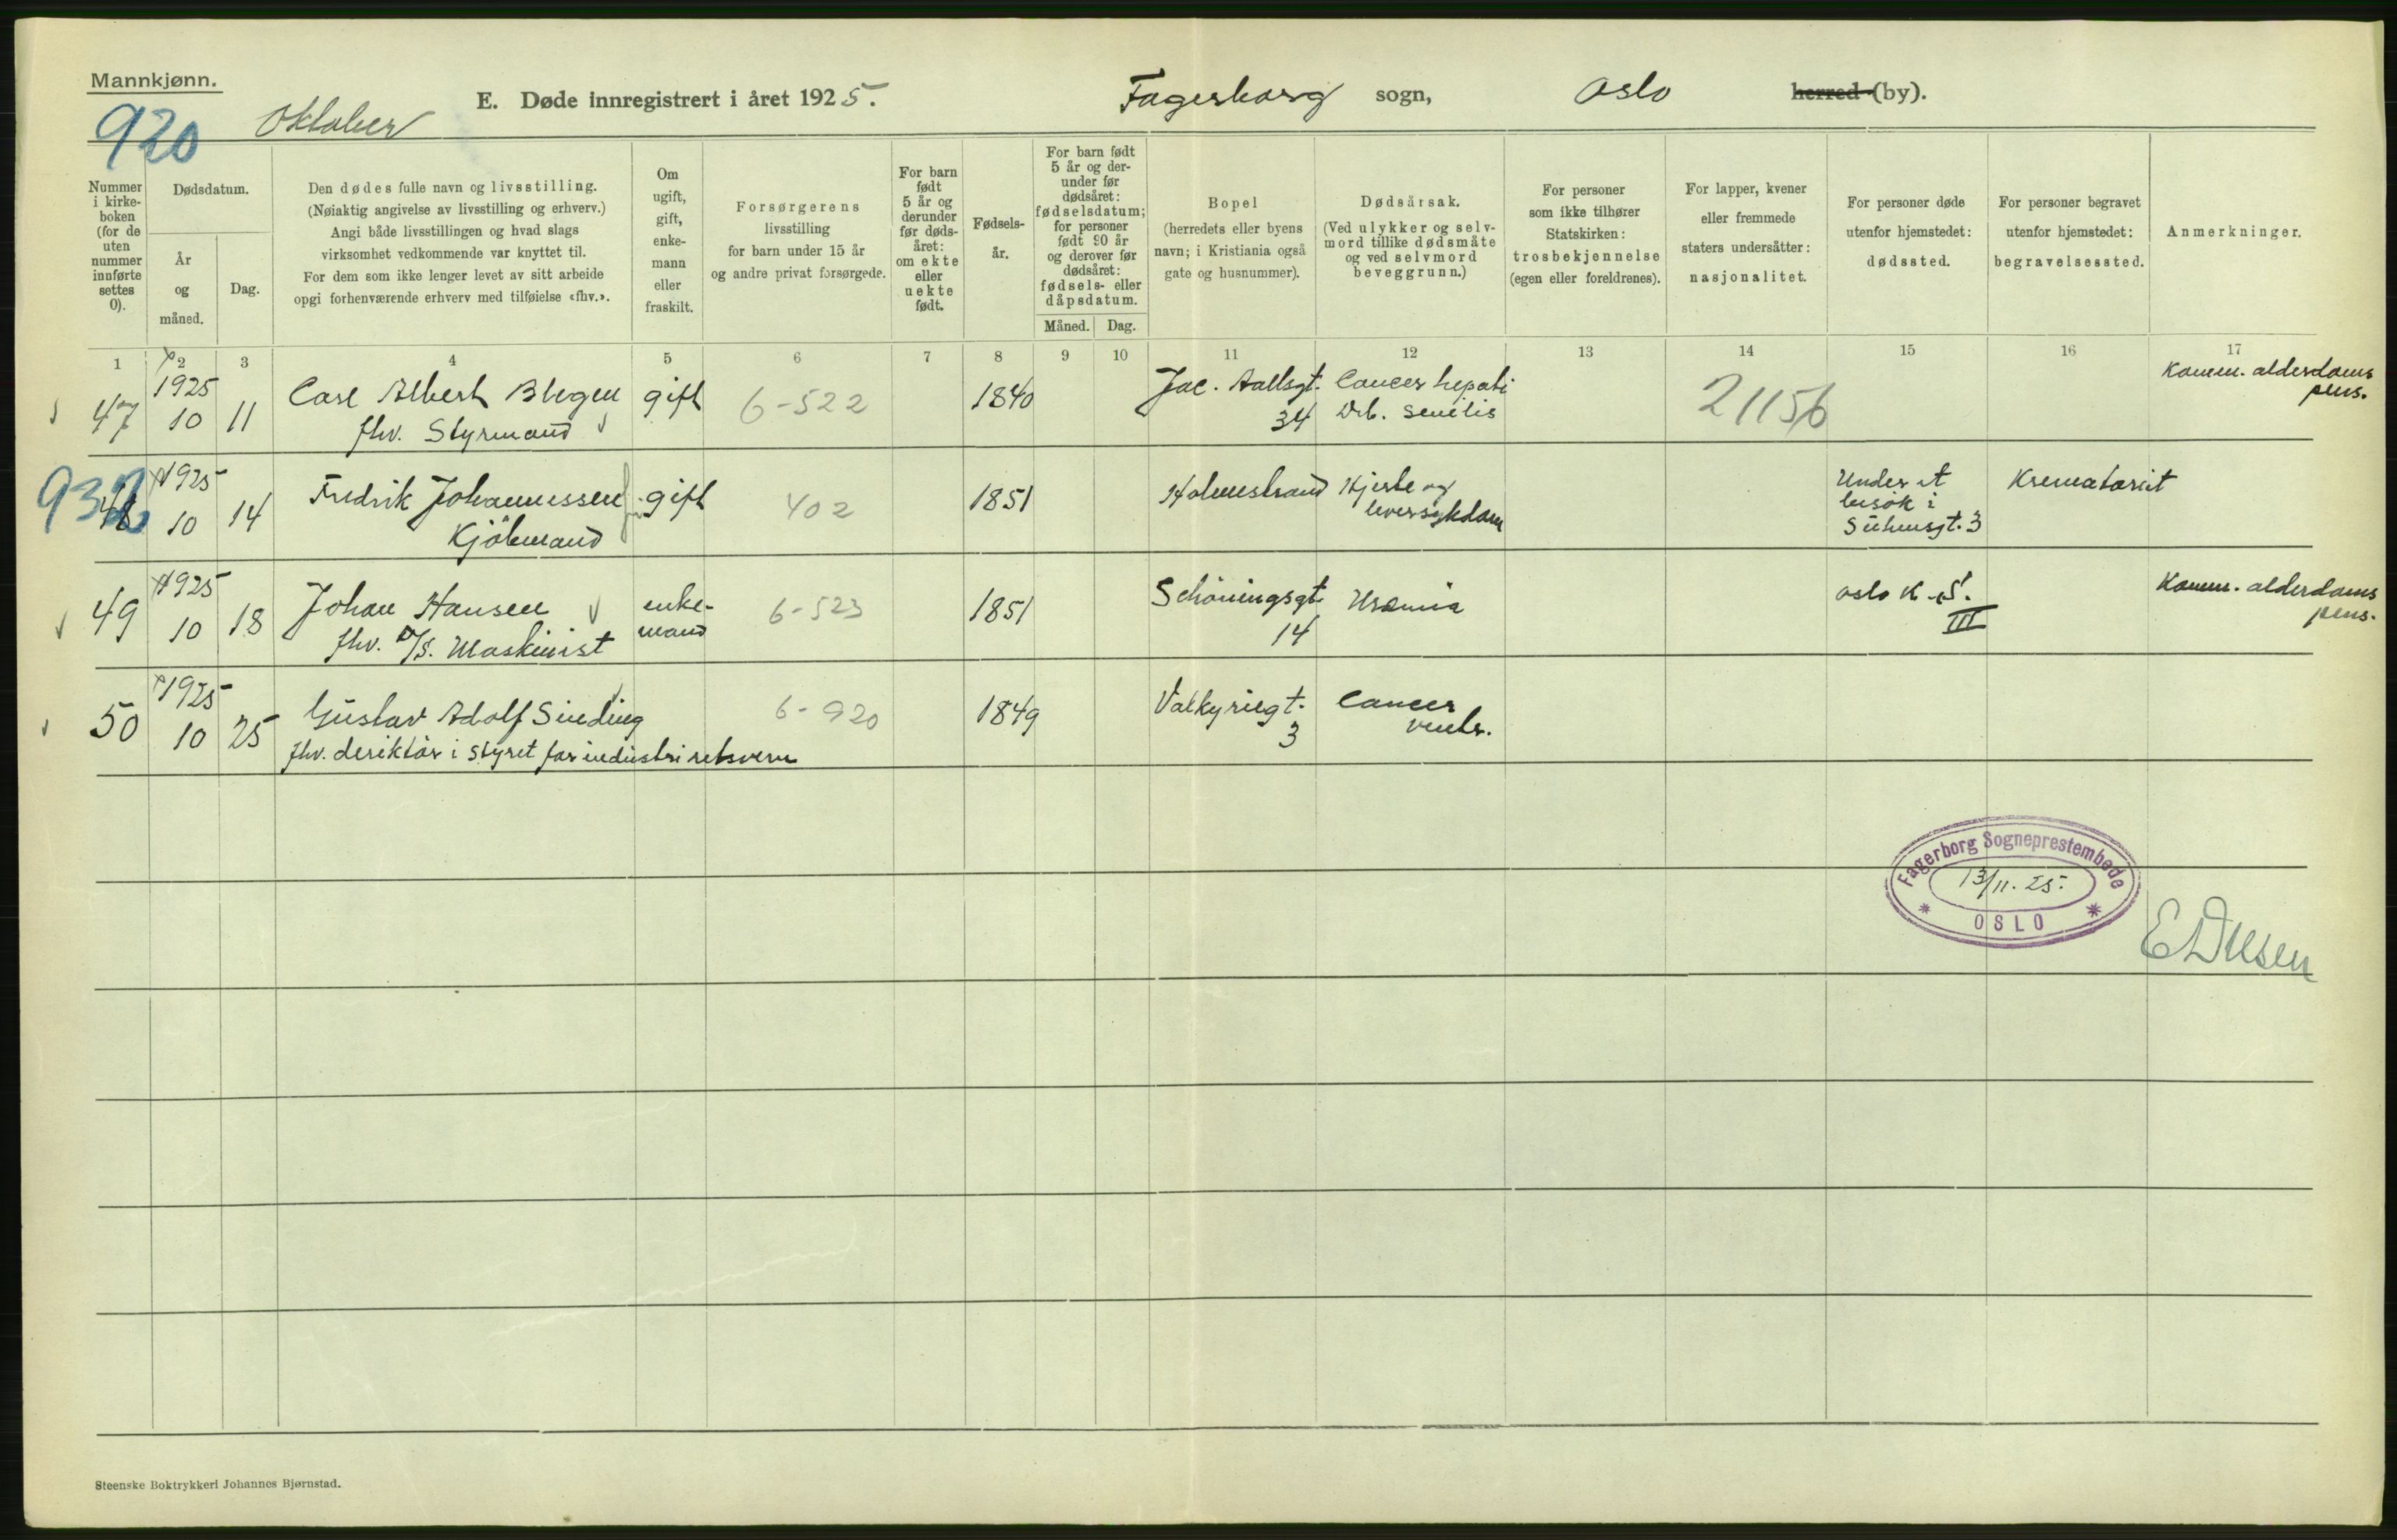 Mannkjønn.
920 Oktober
E. Døde innregistrert i året 1925. Fagerborg sogn, Oslo herred (by).
Nummer i kirke-boken (for de uten nummer innførte settes 0).
Dødsdatum.
År og måned.
Dag.
Den dødes fulle navn og livsstilling.
(Nøiaktig angivelse av livsstilling og erhverv.)
Angi både livsstillingen og hvad slags
virksomhet vedkommende var knyttet til.
For dem som ikke lenger levet av sitt arbeide
opgi forhenværende erhverv med tilføielse «fhv.».
Om ugift, gift, enke-mann eller fraskilt.
Forsørgerens
livsstilling
for barn under 15 år
og andre privat forsørgede.
For barn født 5 år og derunder før døds-året: om ekte eller uekte født.
Fødsels-år.
For barn født 5 år og der-under før dødsåret: fødselsdatum; for personer født 90 år og derover før dødsåret: fødsels- eller dåpsdatum.
Måned. Dag.
Bopel
(herredets eller byens
navn; i Kristiania også
gate og husnummer).
Dødsårsak.
(Ved ulykker og selv-
mord tillike dødsmåte
og ved selvmord
beveggrunn.)
For personer
som ikke tilhører
Statskirken:
trosbekjennelse
(egen eller foreldrenes).
For lapper, kvener
eller fremmede
staters undersåtter:
nasjonalitet.
For personer døde
utenfor hjemstedet:
dødssted.
For personer begravet
utenfor hjemstedet:
begravelsessted.
Anmerkninger.
1 2 3 4 5 6 7 8 9 10 11 12 13 14 15 16 17
47 1925 10 11 Carl Albert Blegen gift 6-522 1840 Jac. Aallsgt. 34 Cancer hepati 21156 Komm. alderdoms
fhv. Styrmand Deb. senilis pens.
932 48 1925 10 14 Fredrik Johannessen gift 402 1851 Holmestrand Hjerte og Under et Krematoriet
Kjöbmand leversykdom besök i
Suhmsgt. 3
49 1925 10 18 Johan Hansen enke- 6-523 1851 Schöningsgt. Uremia Oslo K. S. Komm. alderdoms
fhv. D/S. Maskinist mand 14 III pens.
50 1925 10 25 Gustav Adolf Sinding 6-920 1849 Valkyriegt. Cancer
fhv. direktör i Styret for industri retsvern 3 ventr.
Fagerborg Sogneprestembede
13/11. 25.
* OSLO *
Steenske Boktrykkeri Johannes Bjørnstad.